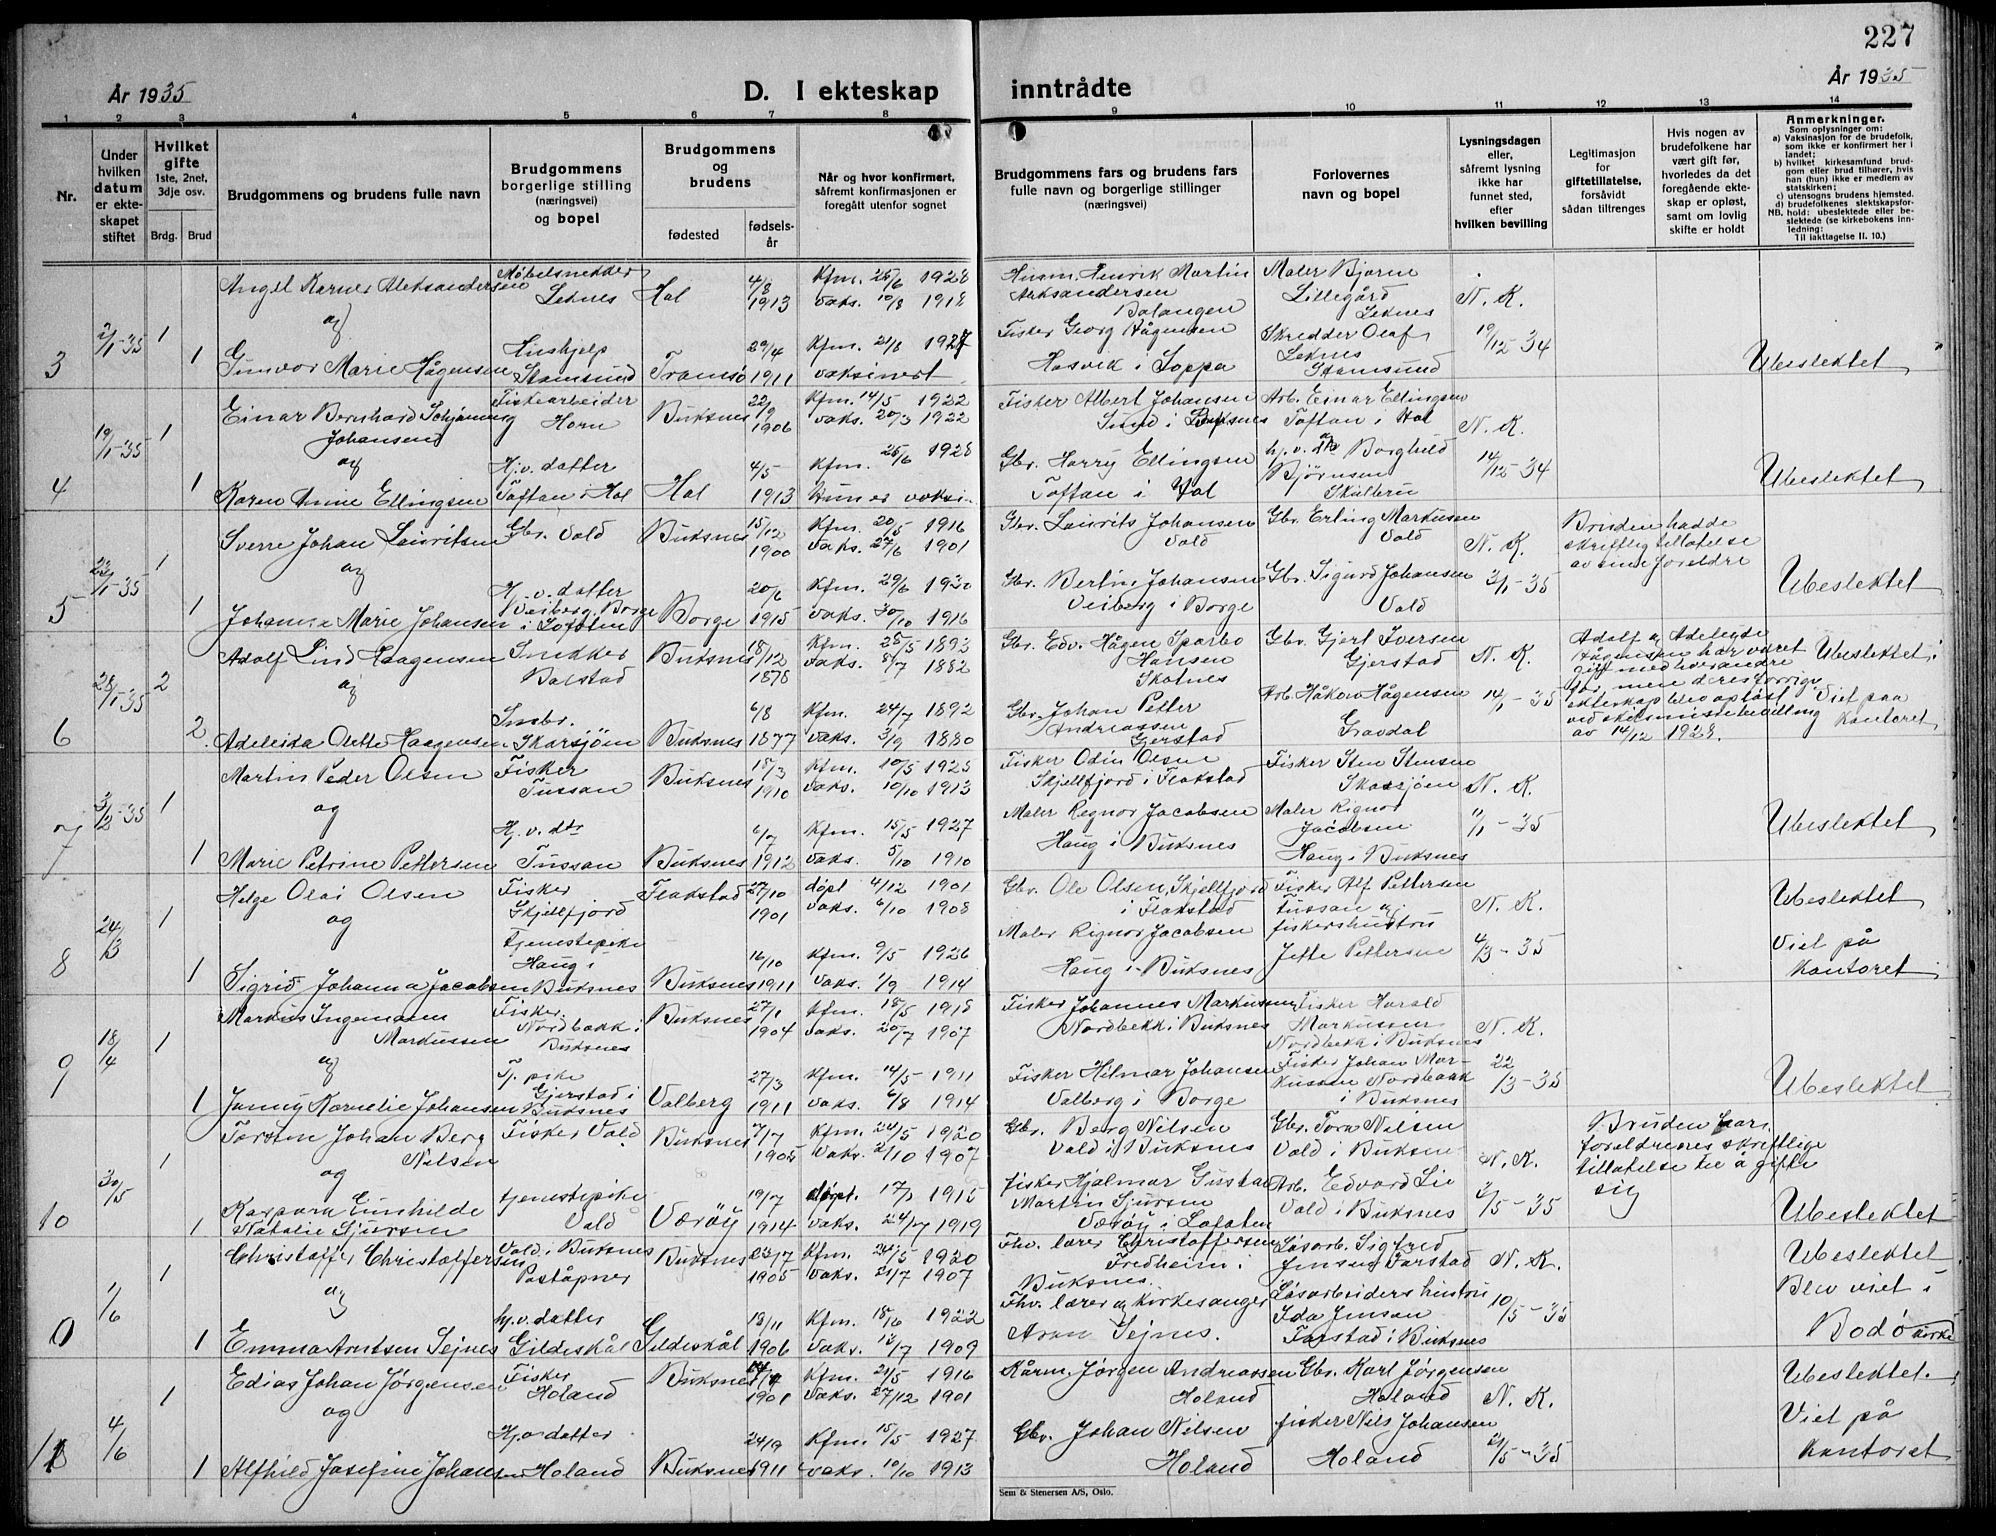 227
År 1935
D. I ekteskap inntrådte
År 1935
1 2 3 4 5 6 7 8 9 10 11 12 13 14
Nr.
Under hvilken datum er ekteskapet stiftet
Hvilket gifte 1ste, 2net, 3dje osv.
Brdg. Brud
Brudgommens og brudens fulle navn
Brudgommens borgerlige stilling (næringsvei) og bopel
Brudgommens og brudens
fødested
fødselsår
Når og hvor konfirmert, såfremt konfirmasjonen er foregått utenfor sognet
Brudgommens fars og brudens fars fulle navn og borgerlige stillinger (næringsvei)
Forlovernes navn og bopel
Lysningsdagen eller, såfremt lysning ikke har funnet sted, efter hvilken bevilling
Legitimasjon for giftetillatelse, forsåvidt sådan tiltrenges
Hvis nogen av brudefolkene har vært gift før, hvorledes da det foregående ekteskap er opløst, samt om lovlig skifte er holdt
Anmerkninger.
Som oplysninger om:
a) Vaksinasjon for de brudefolk, som ikke er konfirmert her i landet;
b) hvilket kirkesamfund brudgom eller brud tilhører, hvis han (hun) ikke er medlem av statskirken;
c) utensogns brudens hjemsted.
d) brudefolkenes slektskapsforhold: ubeslektede eller beslektede (se kirkebokens innledning:
NB. Til iakttagelse II. 10.)
3
2/1-35 1
Angel Karner Aleksandersen
Møbelsnekker Leknes
Hol
4/8 1913
Kfm. 25/6 1928
vaks. 10/8 1918
Husm. Henrik Martin Aleksandersen Balangen
Maler Bjarne Lillegård Leknes
N. K.
og
1
Gunvor Marie Hågensen
Hushjelp Stamsund
Tromsø
29/4 1911
Kfm. 21/8 1927
vaksinert
Fisker Georg Hågensen
Hasvik i Loppa
Skredder Olaf Leknes Stamsund
19/12-34
Ubeslektet
4
19/1-35 1
Einar Bernhard Schjønning Johansen
Fiskearbeider Horn
Buksnes
22/9 1906
Kfm. 14/5 1922
vaks. 20/3 1922
Fisker Albert Johansen
Sund i Buksnes
Arb. Einar Ellingsen
Toftan i Hol
N. K.
og
1
Karen Anine Ellingsen
Hj.v. datter Toftan i Hol
Hol
4/5 1913
Kfm. 25/6 1928
Hun er vaksi.
Gbr. Harry Ellingsen
Toftan i Hol
hj.v. Borghild Bjørnsen
14/12-34
Ubeslektet
5
22/1-35 1
Sverre Johan Lauritsen
Gbr. Vold
Buksnes
15/12 1900
Kfm. 20/5 1916
vaks. 27/6 1901
Gbr. Laurits Johansen
Vold
Gbr. Erling Markussen
Vold
N. K.
Bruden hadde skriftlig tillatelse av sine foreldre
og
1
Johanna Marie Johansen
Hj.v. datter Veiberg, Borge i Lofoten
Borge
20/6 1915
Kfm. 29/6 1930
vaks. 30/10 1916
Gbr. Bertin Johansen
Veiberg i Borge
Gbr. Sigurd Johansen
Vold
3/1-35
Ubeslektet
6
28/1-35 2
Adolf Lind Haagensen
Snekker Balstad
Buksnes
18/12 1878
Kfm. 28/5 1893
vaks. 8/7 1882
Gbr. Edv. Hågen Sparbo Hansen
Skotnes
Gbr. Gjert Iversen
Gjerstad
N. K.
Adolf og Adeleide Hågensen har været gift med hverandre før, men deres forrige ekteskap blev opløst ved skilsmissebevilling av 14/12 1928.
Ubeslektet.
Viet paa kontoret
og
2.
Adeleida Olette Haagensen
Småbr. Skarsjøen
Buksnes
6/8 1877
Kfm. 24/7 1892
vaks. 3/9 1880
Gbr. Johan Petter Andreassen
Gjerstad
Arb. Håkon Hågensen
Gravdal
14/1-35
7
3/2-35 1
Martin Peder Olsen
Fisker Tussan
Buksnes
18/3 1910
Kfm. 10/5 1925
vaks. 10/10 1913
Fisker Odin Olsen
Skjellfjord i Flakstad
Fisker Sten Stensen
Skarsjøen
N. K.
og
1
Marie Petrine Pettersen
Hj. v. dtr Tussan
Buksnes
6/7 1912
Kfm. 15/5 1927
vaks. 5/10 1910
Maler Regnor Jacobsen
Haug i Buksnes
Maler Rignor Jacobsen
Haug i Buksnes
11/1-35
Ubeslektet
8
24/3 1
Helge Olai Olsen
Fisker Skjellfjord
Flakstad
27/10 1901
døpt 4/12 1901
vaks. 6/10 1908
Gbr. Ole Olsen, Skjellfjord i Flakstad
Fisker Alf Pettersen
Tussan og fiskershustru
N. K.
Ubeslektet
og
1
Sigrid Johanna Jacobsen
Tjenestepike Haug i Buksnes
Buksnes
16/10 1911
Kfm. 9/5 1926
vaks. 1/9 1914
Maler Rignor Jacobsen
Haug i Buksnes
Jette Pettersen
4/3-35
Viet på kontoret
9
18/4 1
Markus Ingemann Markussen
Fisker Nordbakk i Buksnes
Buksnes
27/1 1904
Kfm. 18/5 1918
vaks. 20/7 1907
Fisker Johannes Markussen
Nordbakk i Buksnes
Fisker Harald Markussen
Nordbakk i Buksnes
N. K.
og
1
Jenny Kornelie Johansen
Tj. pike Gjerstad i Buksnes
Valberg
27/3 1911
Kfm. 14/5 1911
vaks. 6/8 1914
Fisker Hilmar Johansen
Valberg i Borge
Fisker Johan Markussen Nordbakk i Buksnes
22/3-35
Ubeslektet
10
30/5 1
Torsten Johan Berg Nilsen
Fisker Vold
Buksnes
7/7 1905
Kfm. 24/5 1920
vaks. 2/10 1907
Gbr. Berg Nilsen
Vold i Buksnes
Gbr. Tora Nilsen
Vold i Buksnes
N. K.
Bruden har foreldrenes skriftlige tillatelse til å gifte sig
og
1
Kaspara Gunhilde Natalie Sjursen
tjenestepike Vold
Værøy
19/7 1914
døpt. 17/1 1915
vaks. 24/7 1919
fisker Hjalmar Gustav Martin Sjursen
Værøy i Lofoten
Arb. Edvard Lie
Vold i Buksnes
3/5-35
Ubeslektet
0
1/6 1
Christoffer Christoffersen
Vold i Buksnes Poståpner
Buksnes
23/7 1905
Kfm. 24/5 1920
vaks. 21/7 1907
Fhv. lærer Christoffersen
Fredheim i Buksnes.
Løsarb. Sigfred Jensen Farstad
N. K.
Ubeslektet
Blev viet i Bodø kirke
og
1
Emma Arntsen Seines
hj.v. datter Gildeskål
Gildeskål
13/11 1906
Kfm. 18/6 1922
vaks. 13/7 1909
Fhv. lærer og kirkesanger
Aron Sejnes.
Løsarbeiders hustru Ida Jensen
Farstad i Buksnes
10/5-35
11
4/6 1
Edias Johan Jørgensen
Fisker Holand
Buksnes
1901
Kfm. 21/5 1916
vaks. 27/12 1901
Kårm. Jørgen Andreassen
Holand
Gbr. Karl Jørgensen
Holand
N. K.
Ubeslektet.
Viet på kontoret
og
1
Alfhild Josefine Johansen
Hj.v datter Holand
Buksnes
24/9 1911
Kfm. 15/5 1927
vaks. 10/10 1913
Gbr. Johan Nilsen
Holand
fisker Nils Johansen
Holand
21/5-35
Sem & Stenersen A/S, Oslo.